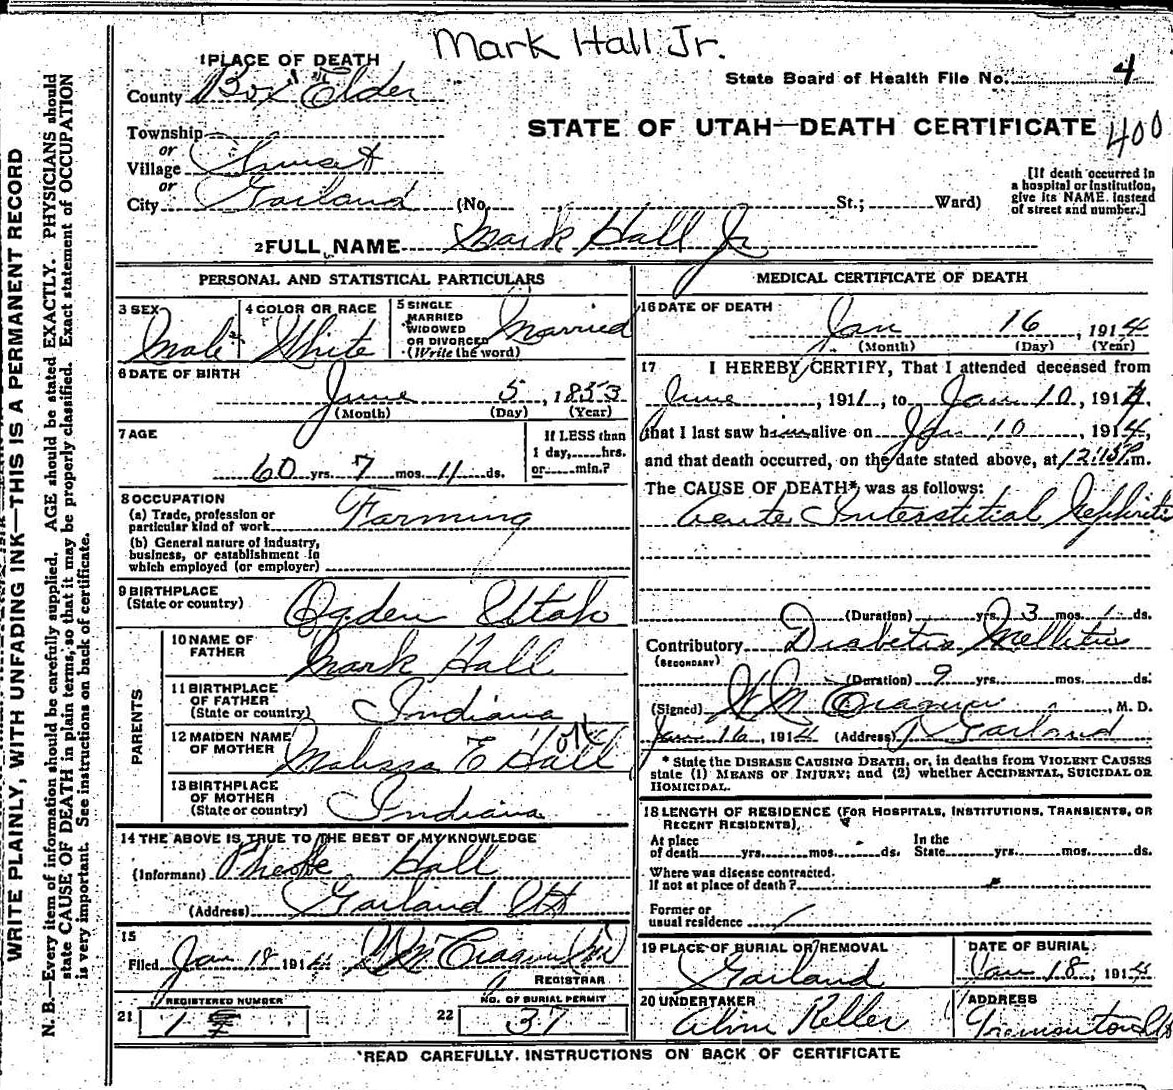 Mark Hall Jr.
1 PLACE OF DEATH
State Board of Health File No. 4
County Box Elder
STATE OF UTAH—DEATH CERTIFICATE 400
Township
or
Village
or
City Garland (No. St.; Ward)
[If death occurred in
a hospital or institution,
give its NAME. instead
of street and number.]
2 FULL NAME Mark Hall Jr
PERSONAL AND STATISTICAL PARTICULARS
3 SEX Male
4 COLOR OR RACE White
5 SINGLE
MARRIED
WIDOWED
OR DIVORCED
(Write the word) Married
6 DATE OF BIRTH
June 5, 1853
(Month) (Day) (Year)
7 AGE
60 yrs. 7 mos. 11 ds.
If LESS than
1 day, hrs.
or min.?
8 OCCUPATION
(a) Trade, profession or
particular kind of work Farming
(b) General nature of industry,
business, or establishment in
which employed (or employer)
9 BIRTHPLACE
(State or country) Ogden Utah
PARENTS
10 NAME OF
FATHER Mark Hall
11 BIRTHPLACE
OF FATHER
(State or country) Indiana
12 MAIDEN NAME
OF MOTHER Malissa E Hall
13 BIRTHPLACE
OF MOTHER
(State or country) Indiana
14 THE ABOVE IS TRUE TO THE BEST OF MY KNOWLEDGE
(Informant) Pheobe Hall
(Address) Garland Ut
15
Filed Jan 18 1914
REGISTRAR
REGISTERED NUMBER
21 1
NO. OF BURIAL PERMIT
22 37
MEDICAL CERTIFICATE OF DEATH
16 DATE OF DEATH
Jan 16, 1914
(Month) (Day) (Year)
17 I HEREBY CERTIFY, That I attended deceased from
June, 1911, to Jan 10, 1914,
that I last saw him alive on Jan 10 1914,
and that death occurred, on the date stated above, at 12:15 P.m.
The CAUSE OF DEATH* was as follows:
Acute Interstitial Nephritis
(Duration) yrs. 3 mos. ds.
Contributory Diabetis Mellitis
(SECONDARY)
(Duration) 9 yrs. mos. ds.
(Signed) , M. D.
Jan 16, 1914 (Address) Garland
* State the DISEASE CAUSING DEATH, or, in deaths from VIOLENT CAUSES
state (1) MEANS OF INJURY; and (2) whether ACCIDENTAL, SUICIDAL OR
HOMICIDAL.
18 LENGTH OF RESIDENCE (FOR HOSPITALS, INSTITUTIONS, TRANSIENTS, OR
RECENT RESIDENTS).
At place
of death yrs. mos. ds. In the
State yrs. mos. ds.
Where was disease contracted.
If not at place of death?
Former or
usual residence
19 PLACE OF BURIAL OR REMOVAL
Garland
DATE OF BURIAL
Jan 18, 1914
20 UNDERTAKER
Keller
ADDRESS
Tremonton
*READ CAREFULLY. INSTRUCTIONS ON BACK OF CERTIFICATE
WRITE PLAINLY, WITH UNFADING INK—THIS IS A PERMANENT RECORD
N. B.—Every item of information should be carefully supplied. AGE should be stated EXACTLY. PHYSICIANS should
state CAUSE OF DEATH in plain terms, so that it may be properly classified. Exact statement of OCCUPATION
is very important. See instructions on back of certificate.